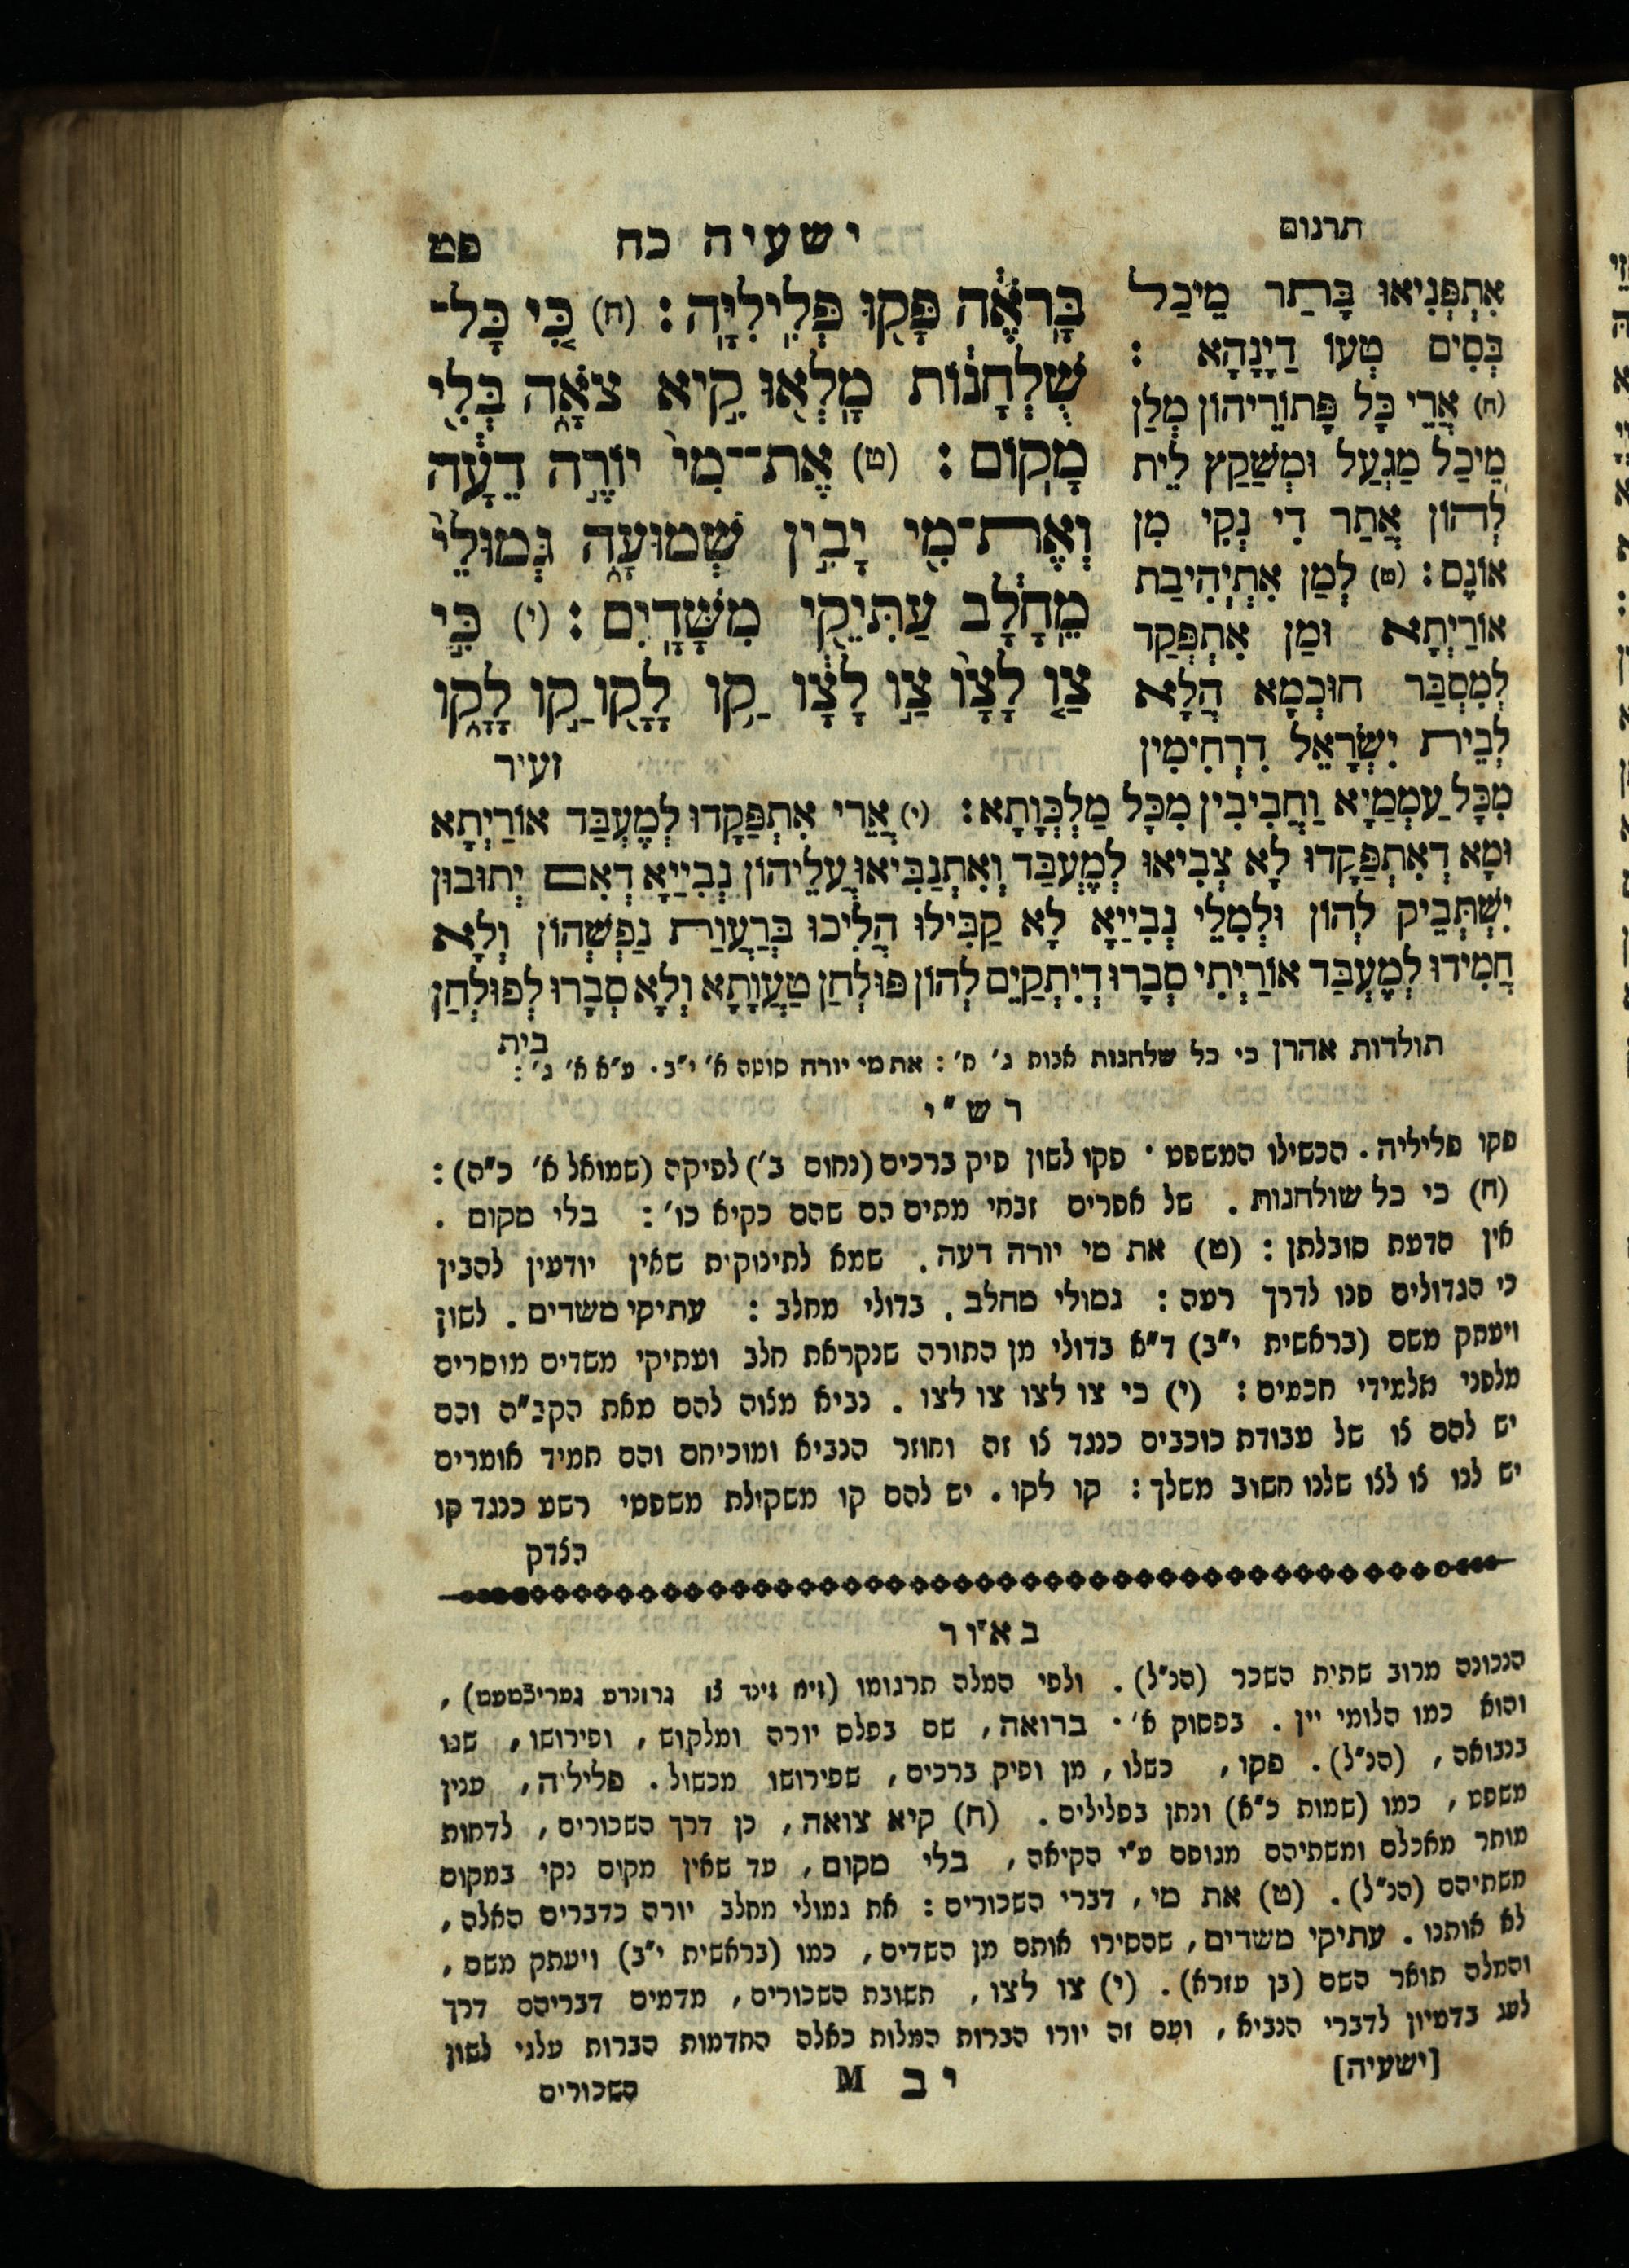 תרגום
ישעיה כח
פט
בָּֽרֹאֶ֔ה פָּק֖וּ פְּלִֽילִיָּֽה׃ (ח) כִּ֚י כָּל־
שֻׁלְחָנ֔וֹת מָֽלְא֖וּ קִ֣יא צֹאָ֑ה בְּלִ֖י
מָקֽוֹם׃ (ט) אֶת־מִי֙ יוֹרֶ֣ה דֵעָ֔ה
וְאֶת־מִ֖י יָבִ֣ין שְׁמוּעָ֑ה גְּמוּלֵי֙
מֵֽחָלָ֔ב עַתִּיקֵ֖י מִשָּׁדָֽיִם׃ (י) כִּ֣י
צַ֤ו לָצָו֙ צַ֣ו לָצָ֔ו קַ֥ו לָקָ֖ו קַ֣ו לָקָ֑ו
זעיר
אִתְפְּנִיאוּ בָּתַר מֵיכַל
בְּסִים טְעוֹ דַיָנָהָא :
(ח) אֲרֵי כָּל פָּתוֹרֵיהוֹן מְלַן
מֵיכַל מַגְעַל וּמְשַׁקַץ לֵית
לְהוֹן אֲתַר דִי נְקִי מִן
אוֹנֶס : (ט) לְמַן אִתְיְהִיבַת
אוֹרַיְתָא וּמַן אִתְפְּקַד
לְמִסְבַּר חוּכְמָא הֲלָא
לְבֵית יִשְׂרָאֵל דִרְחִימִין
מִכָּל עַמְמַיָא וַחֲבִיבִין מִכָּל מַלְכְּוָתָא : (י) אֲרֵי אִתְפַּקָדוּ לְמֶעְבַּד אוֹרַיְתָא
וּמָא דְאִתְפַּקָדוּ לָא צְבִיאוּ לְמֶעְבַּד וְאִתְנַבִּיאוּ עֲלֵיהוֹן נְבִיַיָא דְאִם יְתוּבוּן
יִשְׁתְּבֵיק לְהוֹן וּלְמִלֵי נְבִיַיָא לָא קַבִּילוּ הֲלִיכוּ בִּרְעֲוַת נַפְשְׁהוֹן וְלָא
חֲמִידוּ לְמֶעְבַּד אוֹרַיְתִי סְבָרוּ דְיִתְקַיֵם לְהוֹן פּוּלְחַן טַעֲוָתָא וְלָא סְבָרוּ לְפוּלְחַן
בית
תולדות אהרן כי כל שלחנות אבות ג׳ ח׳ : את מי יורה סוטה א׳ י״ב . ע״א א׳ ג׳ :
רש״י
פקו פליליה . הכשילו המשפט . פקו לשון פיק ברכים (נחום ב׳) לפיקה (שמואל א׳ כ״ה) :
(ח) כי כל שולחנות . של אפרים זבחי מתים הם שהם כקיא כו׳ : בלי מקום .
אין הדעת סובלתן : (ט) את מי יורה דעה . שמא לתינוקית שאין יודעין להבין
כי הגדולים פנו לדרך רעה : גמולי מחלב . בדולי מחלב : עתיקי משדים . לשון
ויעתק משם (בראשית י״ב) ד״א בדולי מן התורה שנקראת חלב ועתיקי משדים מוסרים
מלפני תלמידי חכמים : (י) כי צו לצו צו לצו . נביא מצוה להם מאת הקב״ה והם
יש להם צו של עבודת כוכבים כנגד צו זה וחוזר הנביא ומוכיחם והם תמיד אומרים
יש לנו צו לצו שלנו חשוב משלך : קו לקו . יש להם קו משקילת משפטי רשע כנגד קו
הצדק
באור
הנכונה מרוב שתית השכר (הנ״ל) . ולפי המלה תרגומו (זיא זינד צו גרונדע געריכטעט) ,
והוא כמו הלומי יין . בפסוק א׳ . ברואה , שם בפלס יורה ומלקוש , ופירושו , שגו
בנבואה , (הנ״ל) . פקו , כשלו , מן ופיק ברכים , שפירושו מכשול . פליליה , ענין
משפט , כמו (שמות כ״א) ונתן בפלילים . (ח) קיא צואה , כן דרך השכורים , לדחות
מותר מאכלם ומשתיהם מגופם ע״י הקיאה , בלי מקום , עד שאין מקום נקי במקום
משתיהם (הנ״ל) . (ט) את מי , דברי השכורים : את גמולי מחלב יורה כדברים האלה ,
לא אותנו . עתיקי משדים , שהסירו אותם מן השדים , כמו (בראשית י״ב) ויעתק משם ,
והמלה תואר השם (בן עזרא) . (י) צו לצו , תשובת השכורים , מדמים דבריהם דרך
לעג בדמיון לדברי הנביא , ועם זה יורו הברות המלות כאלה התדמות הברות עלגי לשון
[ישעיה]
יב M
השכורים